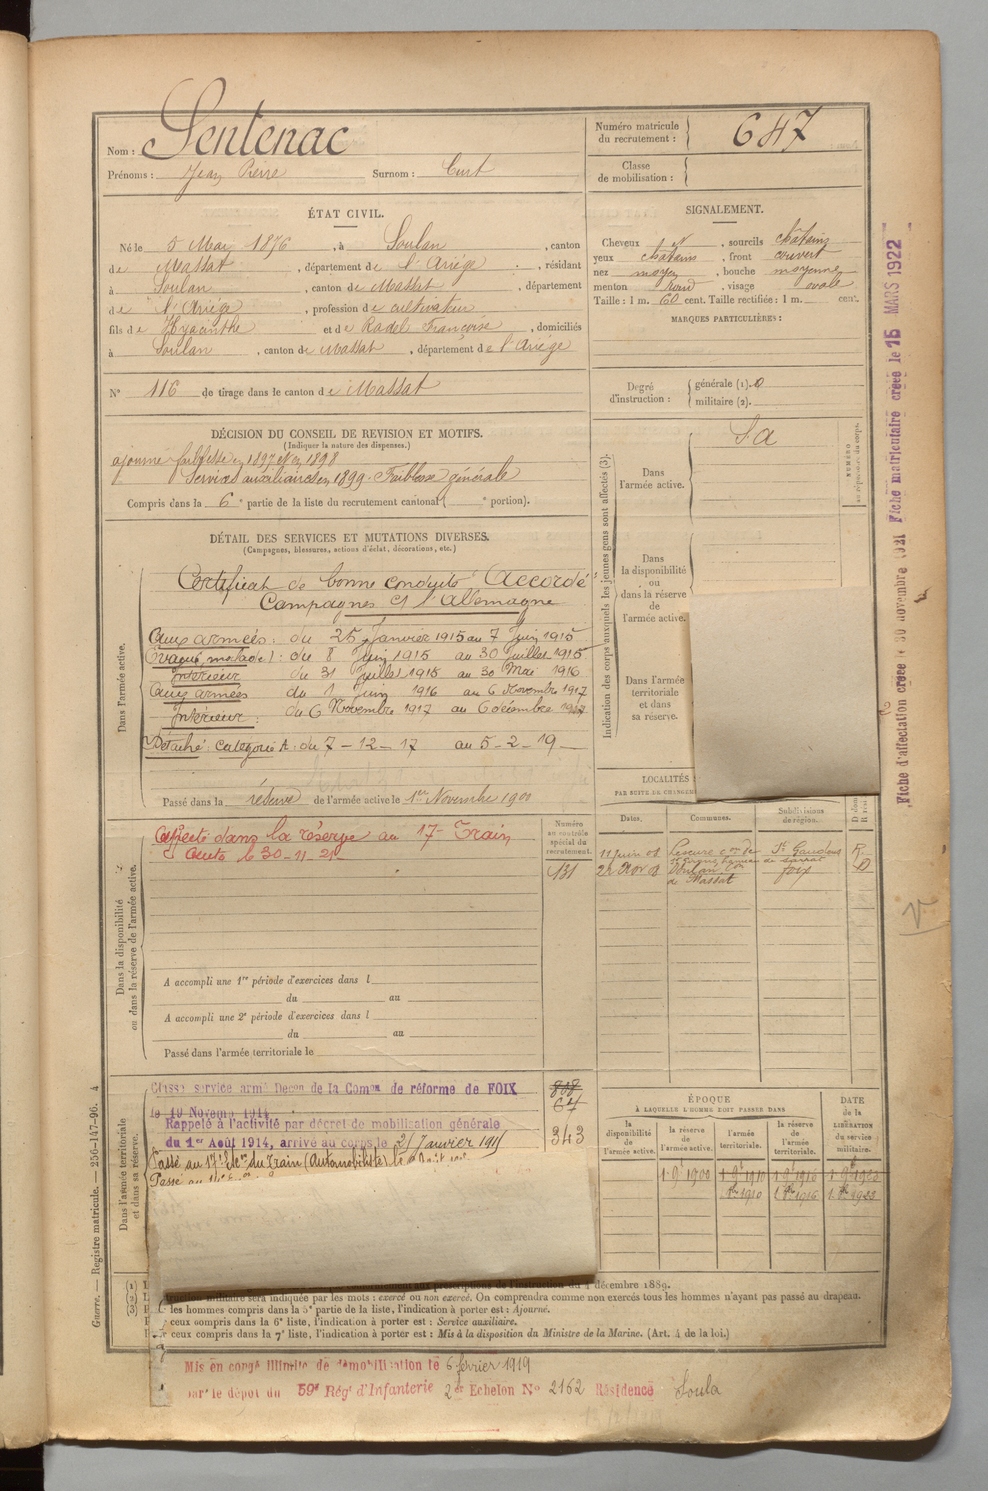 Nom : Sentenac
Prénoms : Jean Pierre Surnom : Curt
Numéro matricule du recrutement : 647
Classe de mobilisation :
ÉTAT CIVIL.
Né le 5 Mai 1876, à Soulan, canton
de Massat, département de l'Ariège, résidant
à Soulan, canton de Massat, département
de l'Ariège, profession de cultivateur
fils de Hyacinthe et de Radel Françoise, domiciliés
à Soulan, canton de Massat, département de l'Ariège
N° 116 de tirage dans le canton de Massat
SIGNALEMENT.
Cheveux N, sourcils chatains
yeux chatains, front couvert
nez moyen, bouche moyenne
menton rond, visage ovale
Taille : 1 m. 60 cent. Taille rectifiée : 1 m. cent.
MARQUES PARTICULIÈRES :
Degré d'instruction : générale (1). 0
militaire (2).
DÉCISION DU CONSEIL DE REVISION ET MOTIFS.
(Indiquer la nature des dispenses.)
ajourné faiblesse en 1897 et en 1898
Services auxiliaires en 1899. Faiblesse générale
Compris dans la 6e partie de la liste du recrutement cantonal ( e portion).
DÉTAIL DES SERVICES ET MUTATIONS DIVERSES.
(Campagnes, blessures, actions d'éclat, décorations, etc.)
Dans l'armée active.
Certificat de bonne conduite "Accordé"
Campagnes Ct l'Allemagne
Aux armées : du 25 Janvier 1915 au 7 Juin 1915
Evacué, malade) : du 8 Juin 1915 au 30 Juillet 1915
Intérieur du 31 Juillet 1915 au 30 Mai 1916
Aux armées du 1 Juin 1916 au 6 Novembre 1917
Intérieur : du 6 Novembre 1917 au 6 décembre 1917
Détaché : catégorie A : du 7-12-17 au 5-2-19
Passé dans la réserve de l'armée active le 1er Novembre 1900
Indication des corps auxquels les jeunes gens sont affectés (3).
Dans l'armée active.
Sa
NUMÉRO au répertoire du corps.
Dans la disponibilité ou dans la réserve de l'armée active.
Dans l'armée territoriale et dans sa réserve.
LOCALITÉS
PAR SUITE DE CHANGEM
Dates. Communes. Subdivisions de région.
11 Juin 01 St Gaudens R
foix D
de Massat
Dans la disponibilité ou dans la réserve de l'armée active.
Numéro au contrôle spécial du recrutement.
Affecté dans la réserve au 17e Train
Auto le 30-11-21
131
A accompli une 1re période d'exercices dans l
du au
A accompli une 2e période d'exercices dans l
du au
Passé dans l'armée territoriale le
Dans l'armée territoriale et dans sa réserve.
Classé service armé Decon de la Comon de réforme de FOIX
le 19 Novemb 1914
Rappelé à l'activité par décret de mobilisation générale
du 1er Août 1914, arrivé au corps le 25 Janvier 1915
Passé au 17e Ede du Train (Automobiliste) le
808
67
343
ÉPOQUE
À LAQUELLE L'HOMME DOIT PASSER DANS
la disponibilité de l'armée active. la réserve de l'armée active. l'armée territoriale. la réserve de l'armée territoriale.
DATE de la LIBÉRATION du service militaire.
1 9e 1900
1910 1916
décembre 1889.
militaire sera indiquée par les mots : exercé ou non exercé. On comprendra comme non exercés tous les hommes n'ayant pas passé au drapeau.
les hommes compris dans la 5e partie de la liste, l'indication à porter est : Ajourné.
ceux compris dans la 6e liste, l'indication à porter est : Service auxiliaire.
ceux compris dans la 7e liste, l'indication à porter est : Mis à la disposition du Ministre de la Marine. (Art. 4 de la loi.)
Mis en congé illimité de démobilisation le 6 février 1919
par le dépôt du 59e Régt d'Infanterie 2er Echelon No 2162 Résidence Soula
Guerre. — Registre matricule. — 256-147-96. 4
Fiche d'affectation créée le 30 novembre 1921 Fiche matriculaire créée le 15 MARS 1922